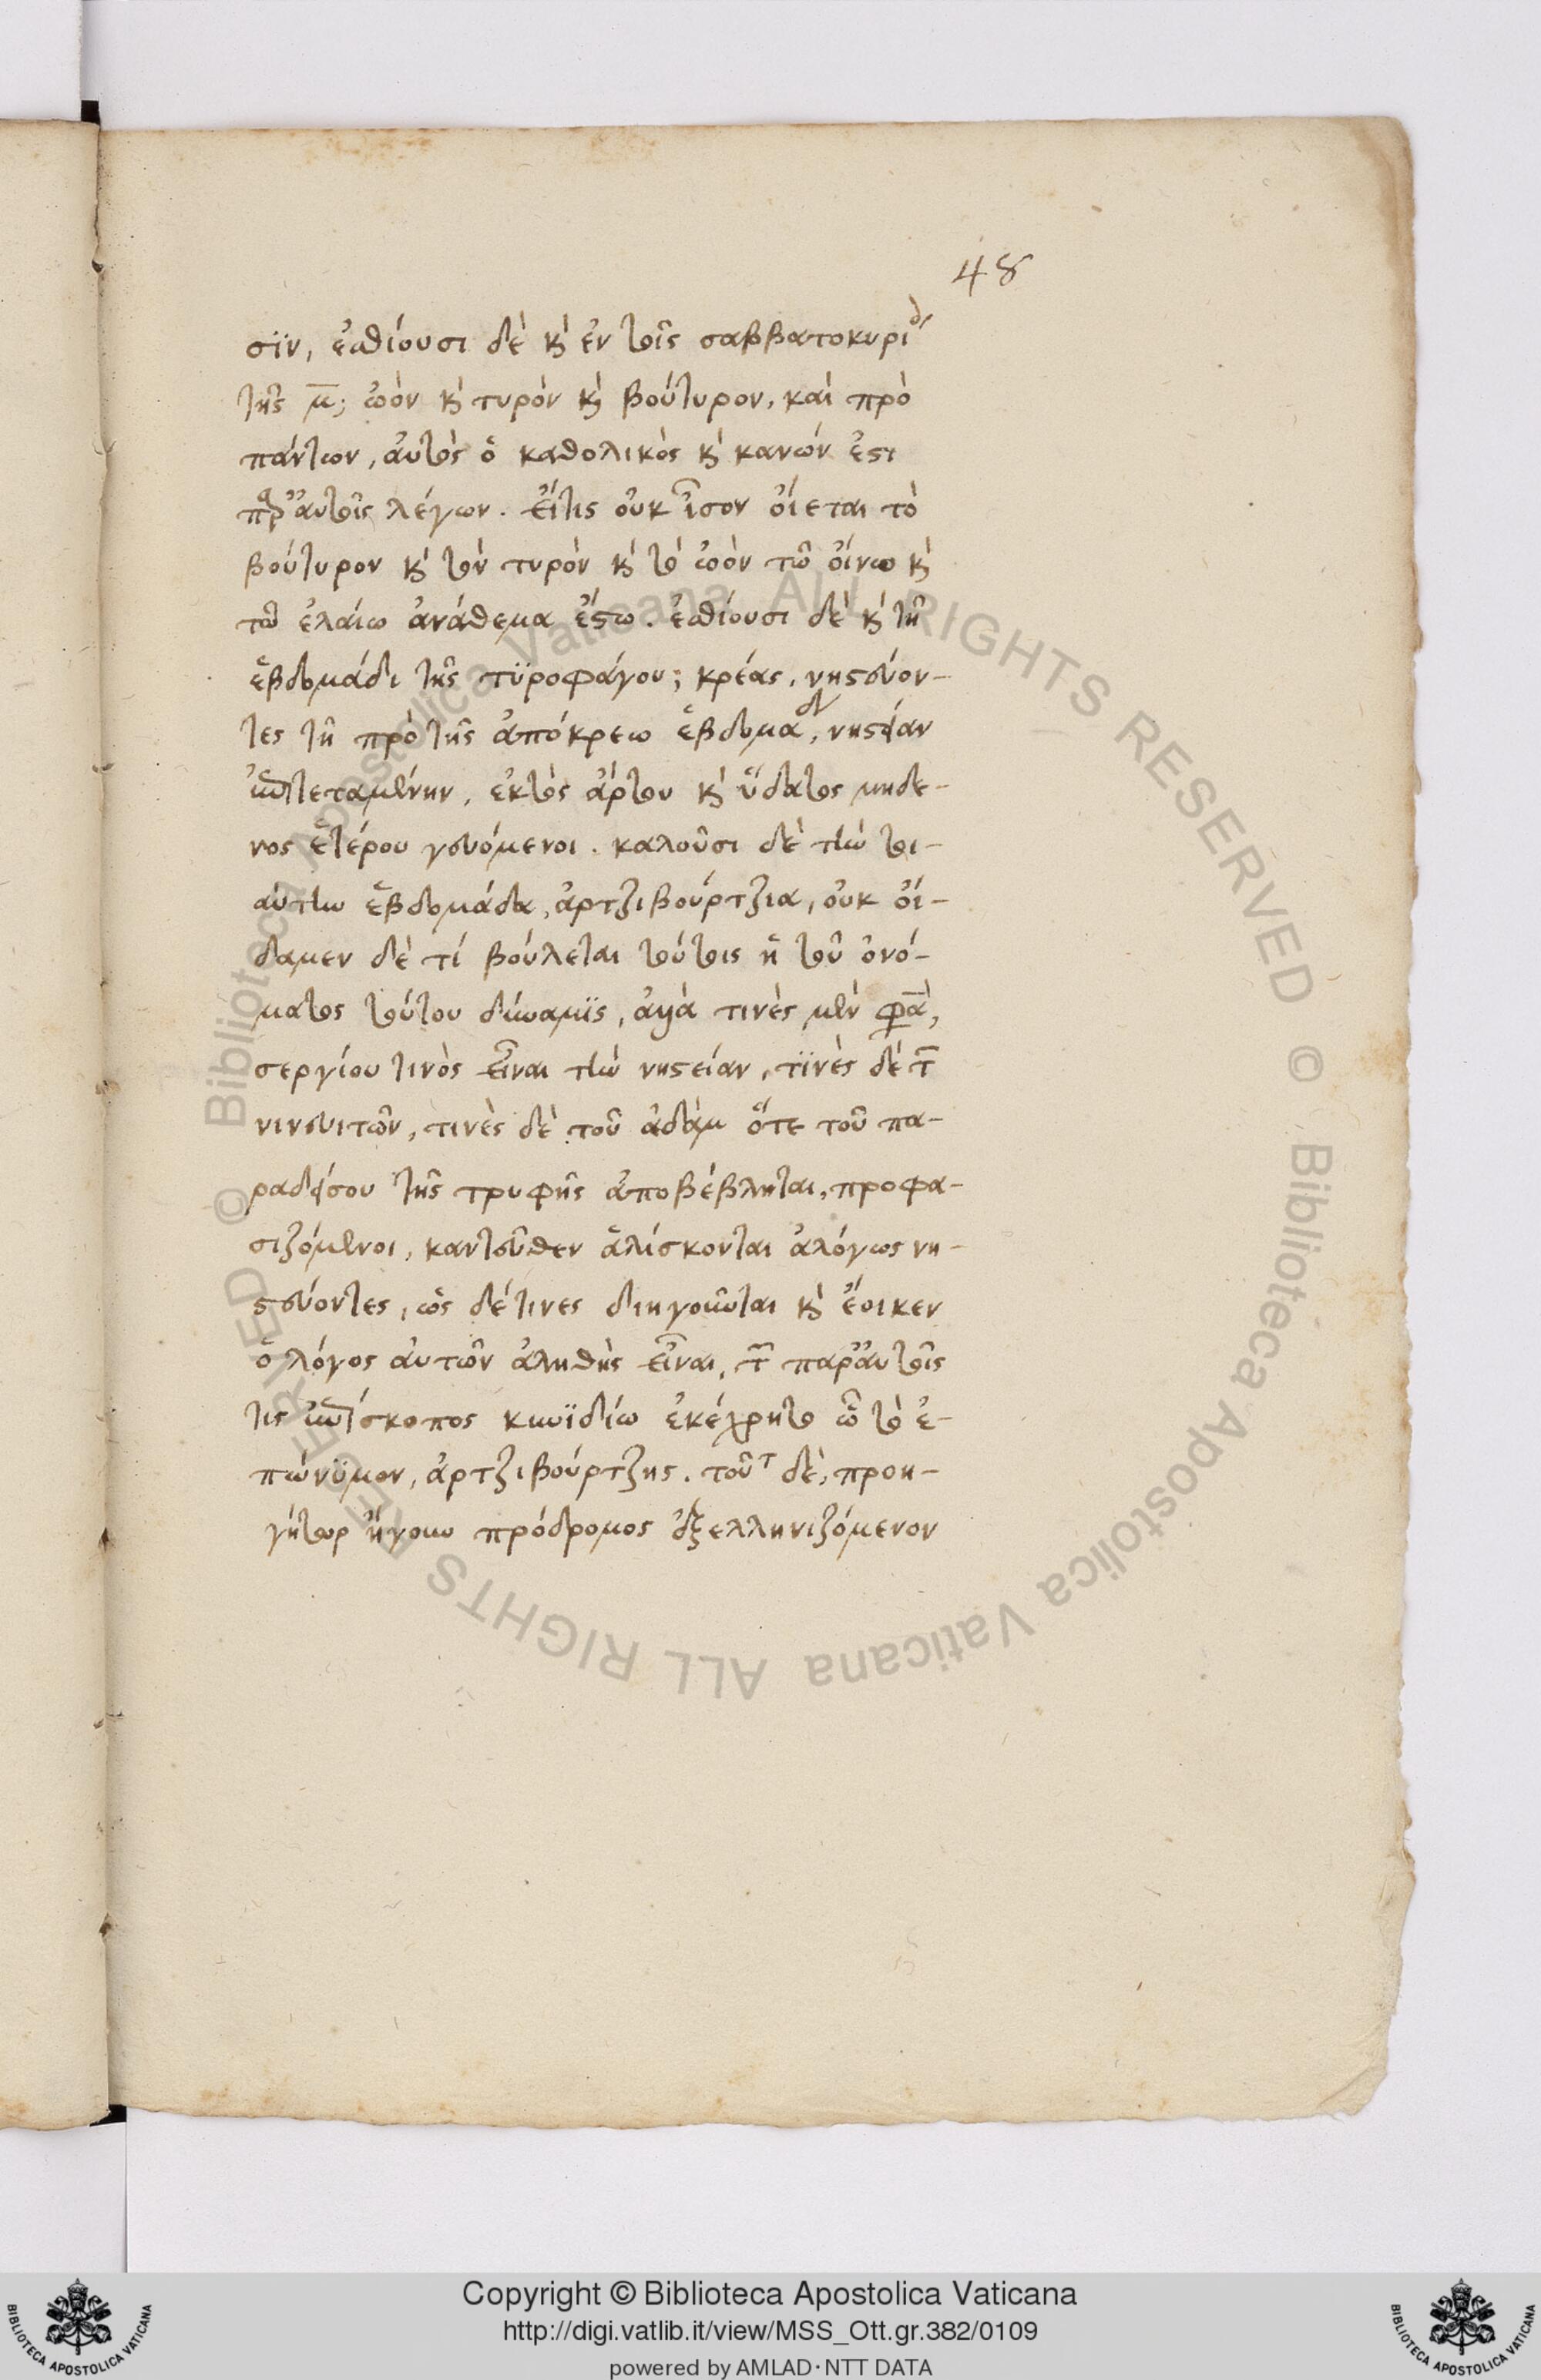 48
σϊν, ἐσθίουσι δὲ κὶ ἐν τοῖς σαββατοκυρι
τῆς μ̅; ὠὸν κὶ τυρὸν κὶ βούτυρον, καὶ πρὸ
πάντων, αὐτὸς ὁ καθολικὸς κὶ κανών ἐστι
παρ' αὐτοῖς λέγων. εἴτις οὐκ ἶσον οἴεται τὸ
βούτυρον κὶ τὸν τυρὸν κὶ τὸ ὠὸν τῶ οἴνω κὶ
τῶ ἐλαίω ἀνάθεμα ἔστω. ἐσθίουσι δὲ κὶ τῆ
ἑβδομάδι τῆς τϋροφάγου; κρέας, νηστεύον-
τες τῆ πρὸ τῆς ἀπόκρεω ἑβδομαδι, νηστείαν
ἐπιτεταμένην, ἐκτὸς ἄρτου κὶ ὕδατος μηδε-
νος ἑτέρου γευόμενοι. καλοῦσι δὲ τὴν τοι-
αύτην ἑβδομάδα, ἀρτζιβούρτζια, οὐκ οἴ-
δαμεν δὲ τί βούλεται τούτοις ἡ τοῦ ὀνό-
ματος τούτου δύναμϊς, ἀλλὰ τινὲς μὲν φασὶ,
σεργίου τινὸς εἶναι τὴν νηστείαν, τϊνὲς δὲ τῶν
νινευιτῶν, τινὲς δὲ τοῦ ἀδὰμ ὅτε τοῦ πα-
ραδείσου τῆς τρυφῆς ἀποβέβληται, προφα-
σιζόμενοι, καντεῦθεν ἁλίσκονται ἀλόγως νη-
στεύοντες, ὡς δέ τινες διηγοῦνται κὶ ἔοικεν
ὁ λόγος αὐτῶν ἀληθὴς εἶναι, τῶν παρ' αὐτοῖς
τις ἐπίσκοπος κυνϊδίω ἐκέχρητο ὧ τὸ ἐ-
πώνϋμον, ἀρτζιβούρτζης. τοῦτ δὲ, προη-
γήτωρ ἤγουν πρόδρομος ἐξελληνιζόμενον
Copyright © Biblioteca Apostolica Vaticana
http://digi.vatlib.it/view/MSS_Ott.gr.382/0109
powered by AMLAD·NTT DATA
BIBLIOTECA APOSTOLICA VATICANA
BIBLIOTECA APOSTOLICA VATICANA
© Biblioteca Apostolica Vaticana ALL RIGHTS RESERVED © Biblioteca Apostolica Vaticana ALL RIGHTS RESERVED